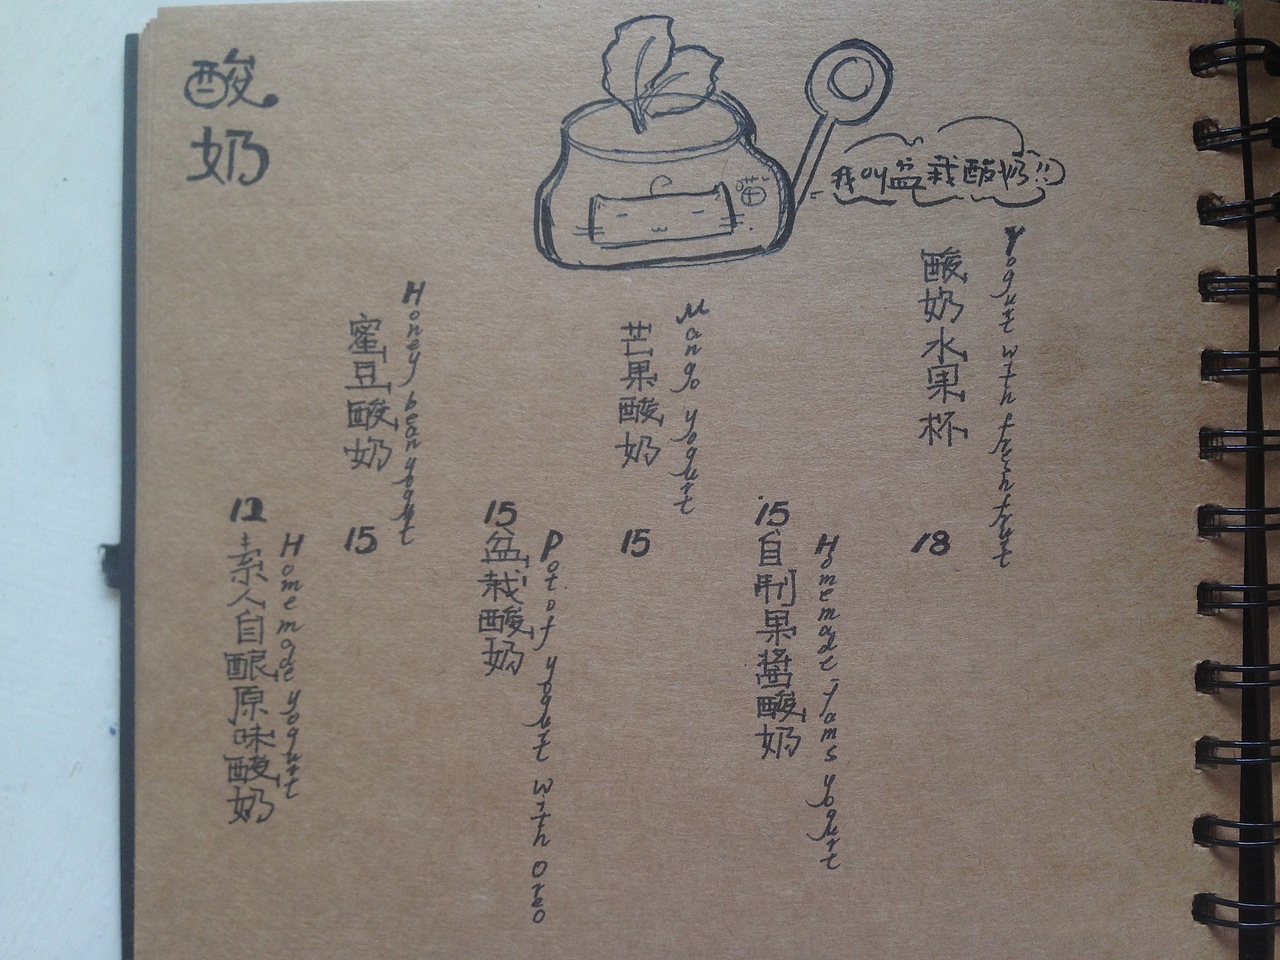 酸奶
我叫盆栽酸奶!!
12
素人自酿原味酸奶
Homemade yogurt
蜜豆酸奶
Honey bean yogurt
15
15
盆栽酸奶
Pot of yogurt with oreo
芒果酸奶
Mango yogurt
15
15
自制果酱酸奶
Homemade jams yogurt
酸奶水果杯
Yogurt with fresh fruit
18